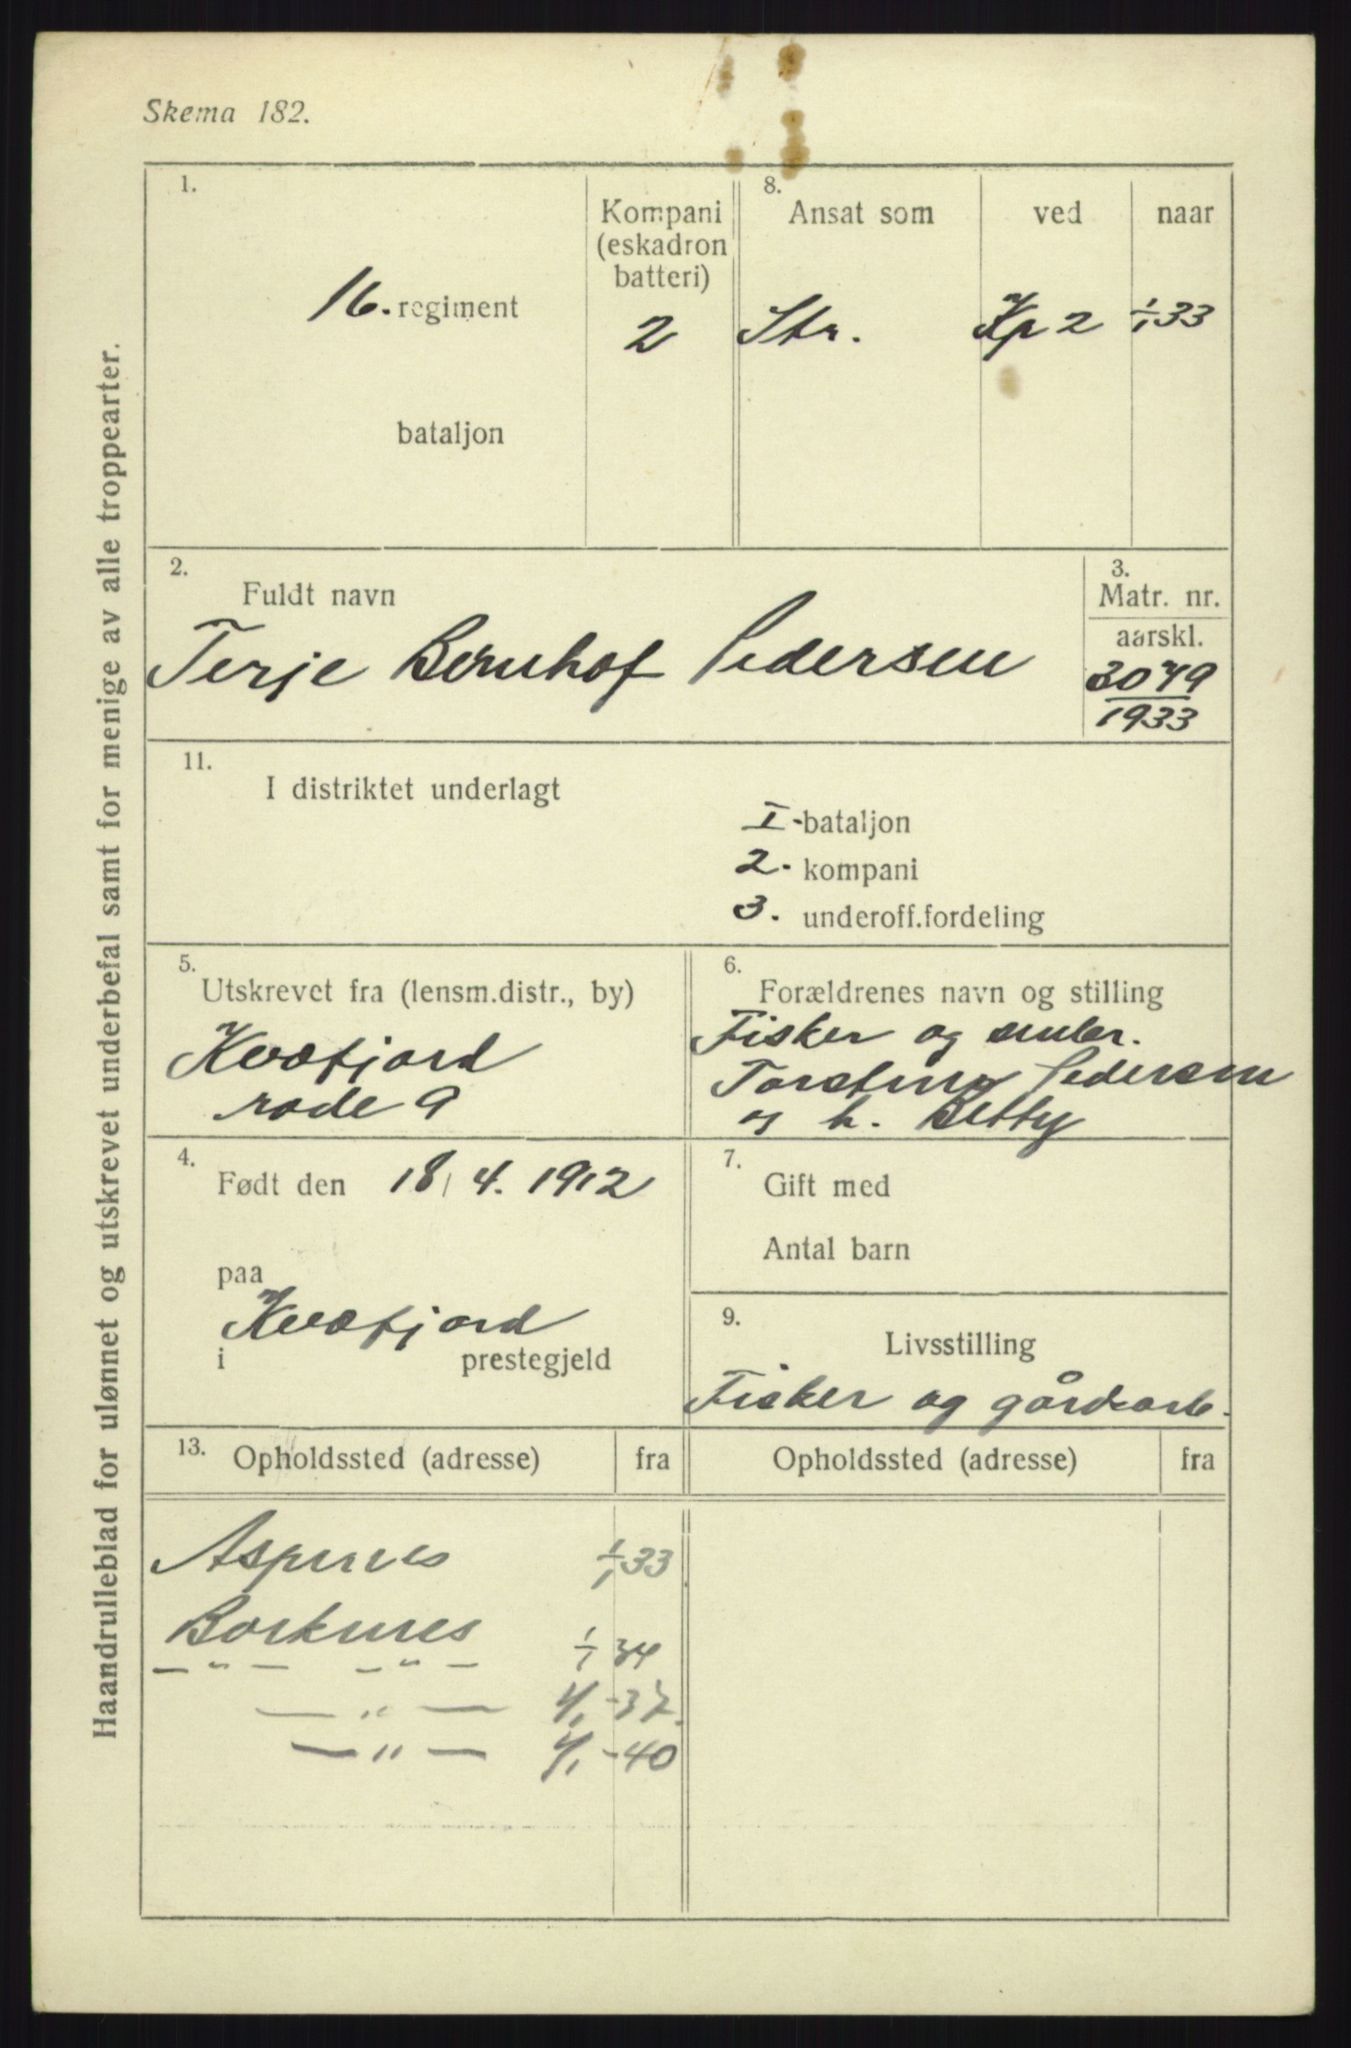 Skema 182.
Haandrulleblad for ulønnet og utskrevet underbefal samt for menige av alle troppearter.
1.
16. regiment
bataljon
Kompani
(eskadron
batteri)
2
8.
Ansat som ved naar
Str. Kp 2 1/1 33
2.
Fuldt navn
Terje Bernhof Pedersen
3.
Matr. nr.
aarskl.
3049
1933
11.
I distriktet underlagt
I. bataljon
2. kompani
3. underoff.fordeling
5.
Utskrevet fra (lensm.distr., by)
Kvæfjord
rode 9
6.
Forældrenes navn og stilling
Fisker og
Pedersen
og h. Betty
4.
Født den 18/4. 1912
paa
Kvæfjord
i prestegjeld
7.
Gift med
Antal barn
9.
Livsstilling
Fisker og gårdsarb.
13. Opholdssted (adresse) fra
Aspenes 1/1 33
Borkenes
— " — — " — 1/1 34
— " — 1/1-37.
— " — 1/1-40
Opholdssted (adresse) fra